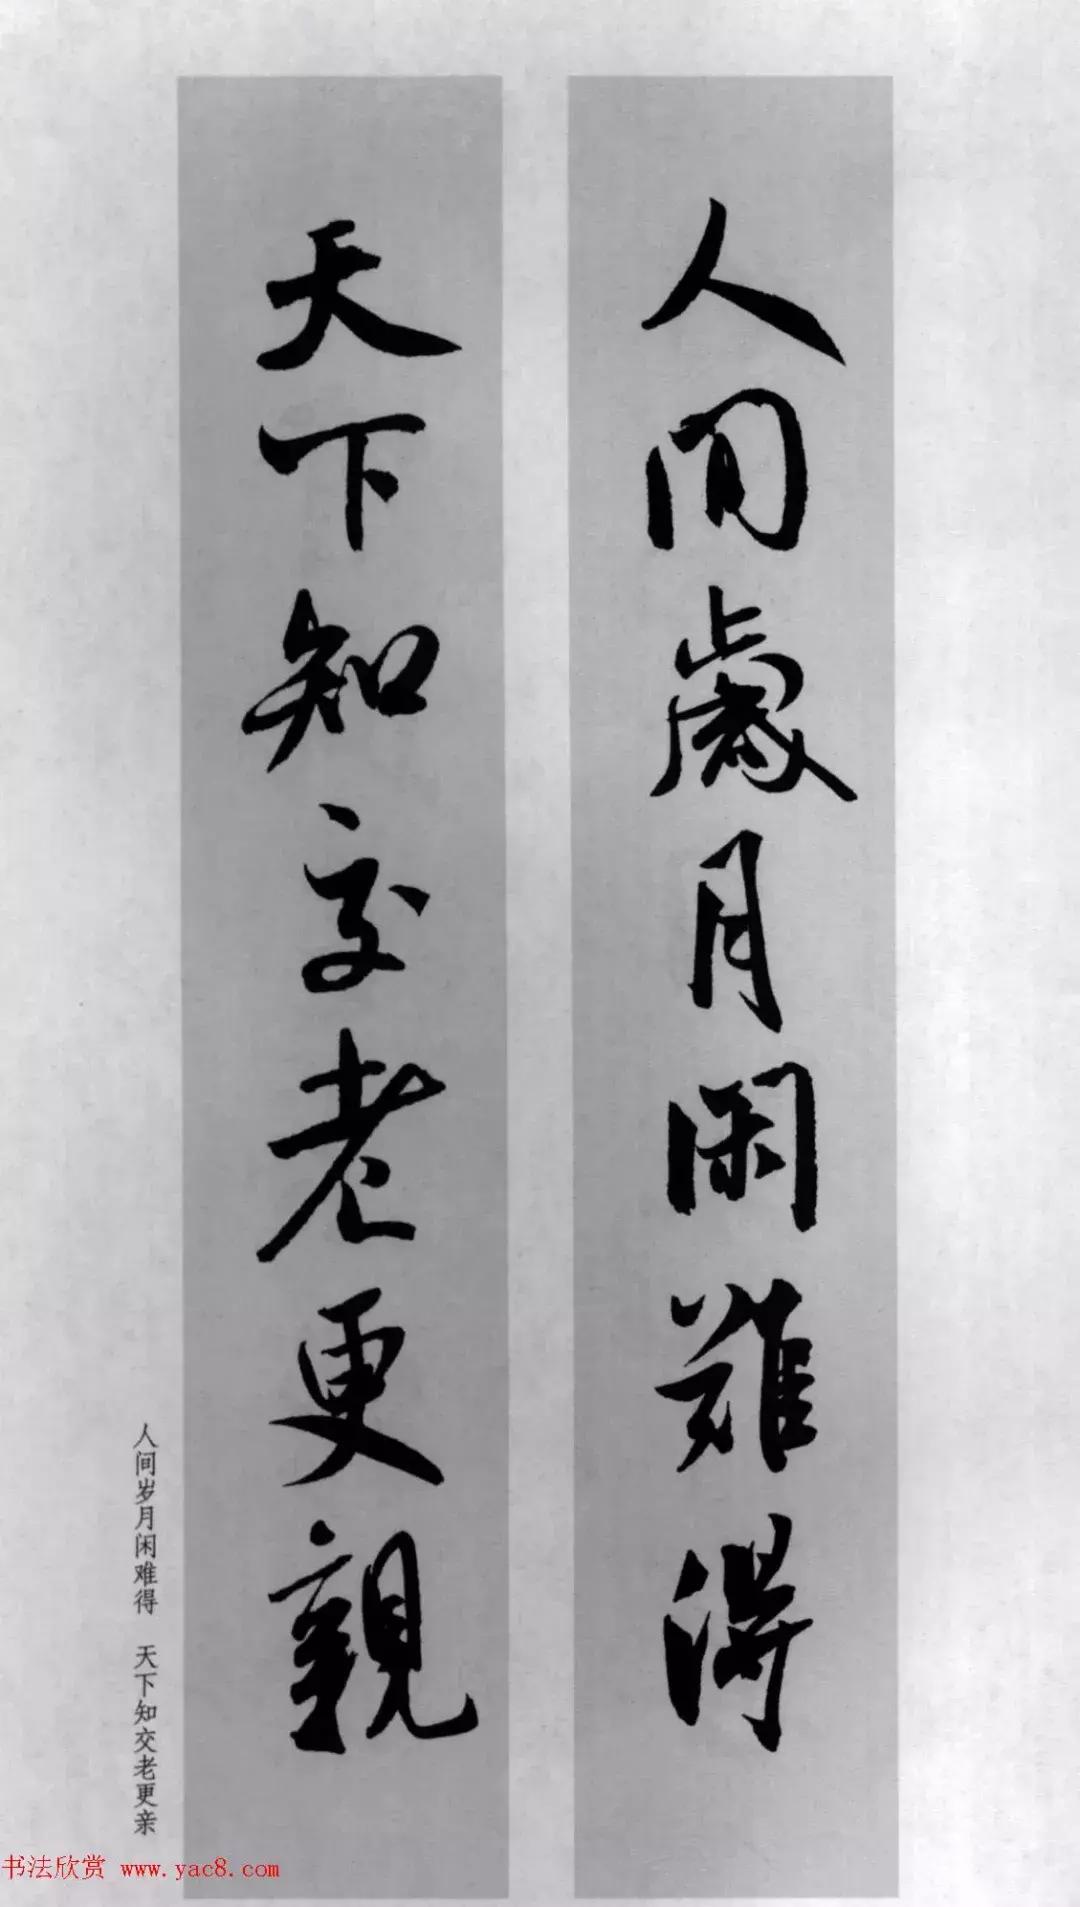 人間歲月閑難得
天下知交老更親
人间岁月闲难得　天下知交老更亲
书法欣赏 www.yac8.com